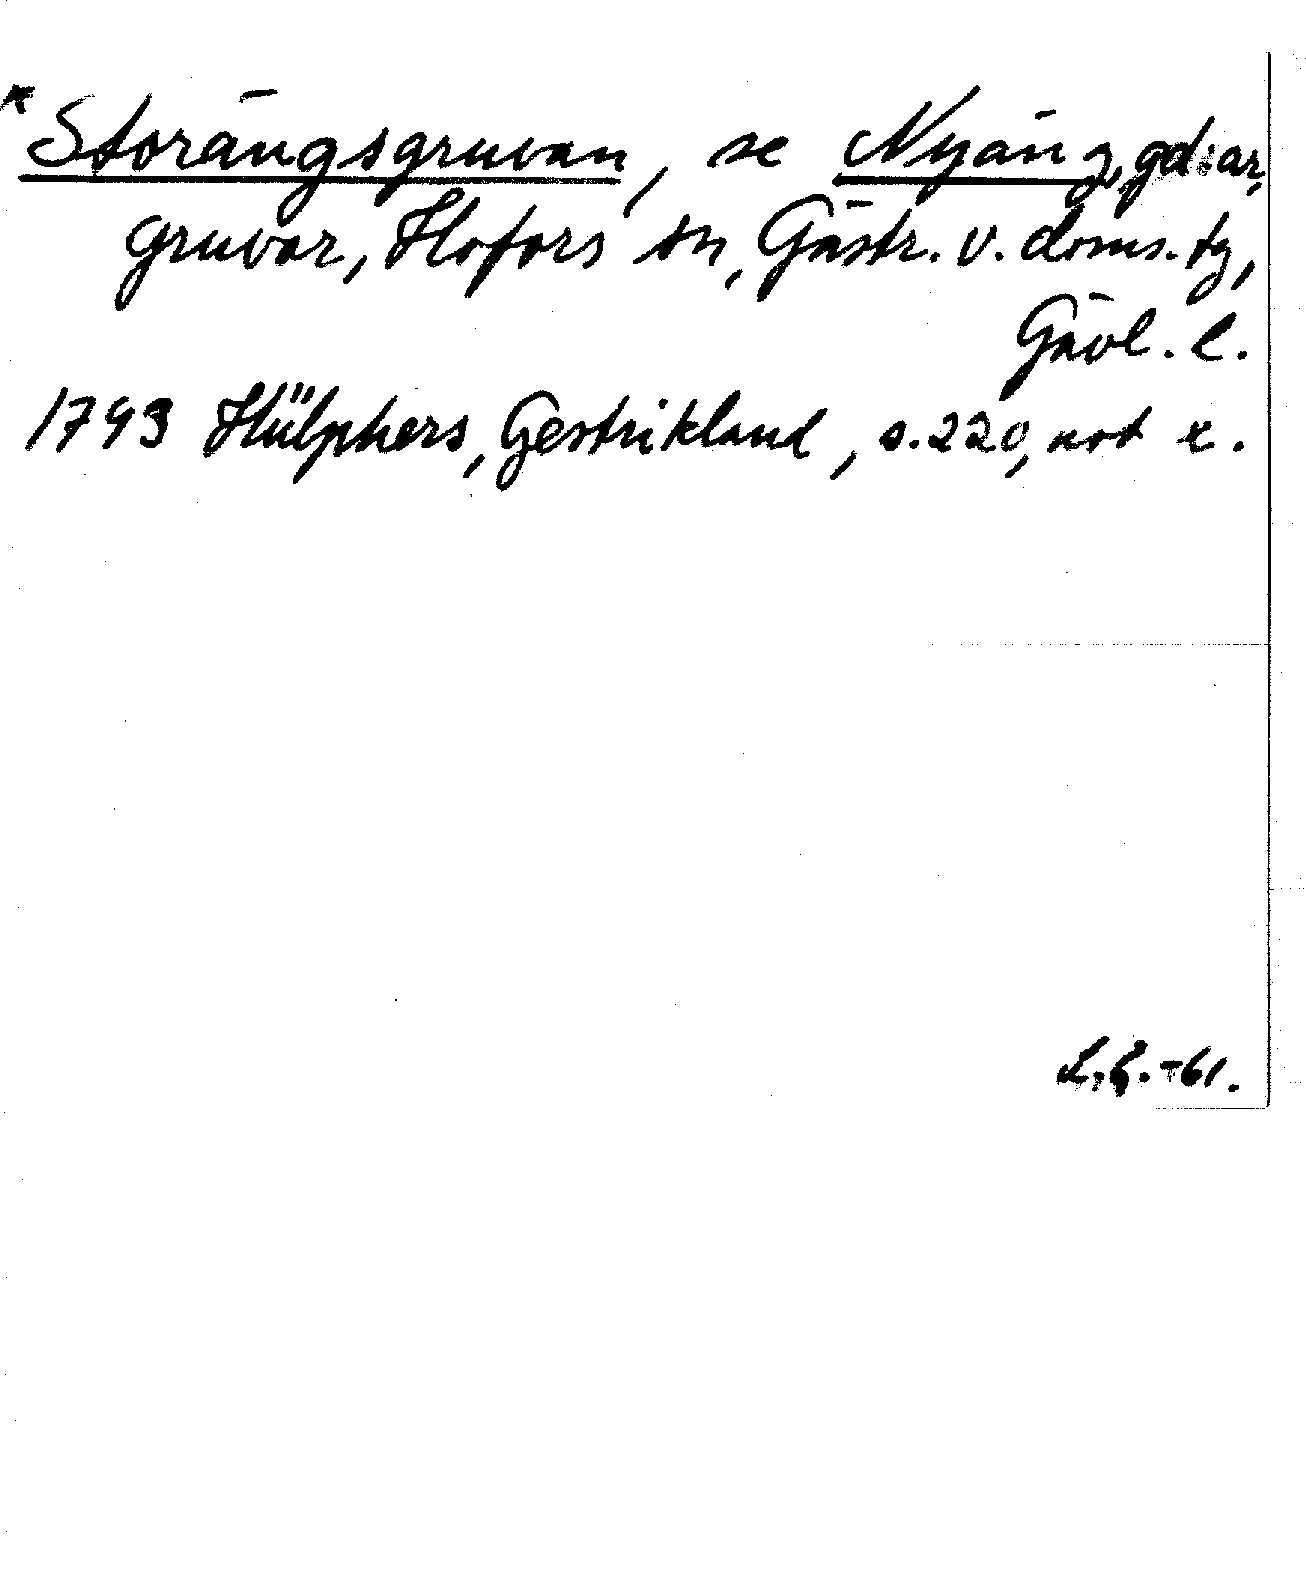 * Storängsgruvan, se Nyäng, gd:ar,
gruvor, Hofors sn, Gästr. v. doms. tg,
Gävl. l.
1793 Hülphers, Gestrikland, s. 220, not x.
-61.